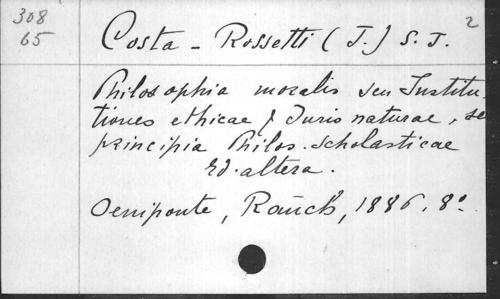 308
65
Costa - Rossetti (J.) S. J.
2
Philosophia moralis seu Institu-
tiones ethicae & Juris naturae, se
principia Philos. scholasticae
Ed. altera.
Oeniponte, Rauch, 1886, 8º.